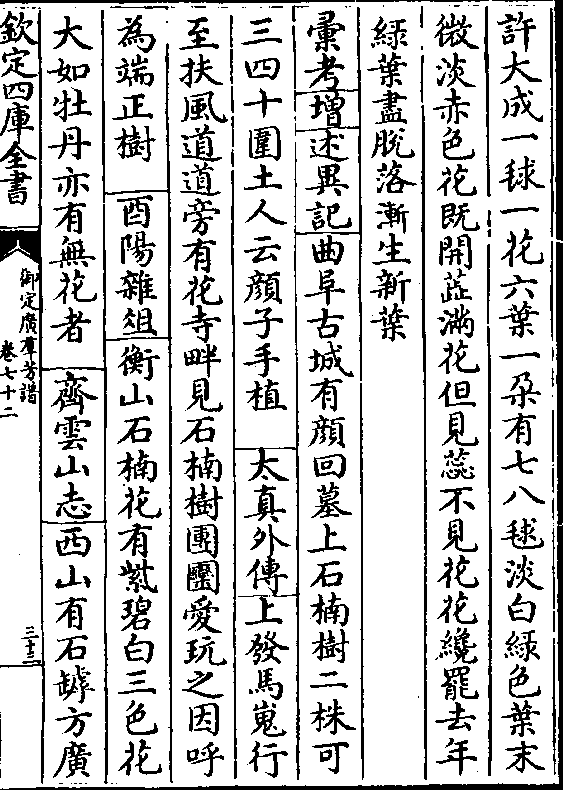 許大成一毬一花六葉一朶有七八毬淡白綠色葉末
微淡赤色花既開蕋滿花但見蕊不見花花纔罷去年
綠葉盡脫落漸生新葉
彙考增述異記曲阜古城有顔回墓上石楠樹二株可
三四十圍土人云顔子手植 太真外傳上發馬嵬行
至扶風道道旁有花寺畔見石楠樹團圞愛玩之因呼
為端正樹 酉陽雜俎衡山石楠花有紫碧白三色花
大如牡丹亦有無花者 齊雲山志西山有石罅方廣
欽定四庫全書
御定廣羣芳譜
卷七十二